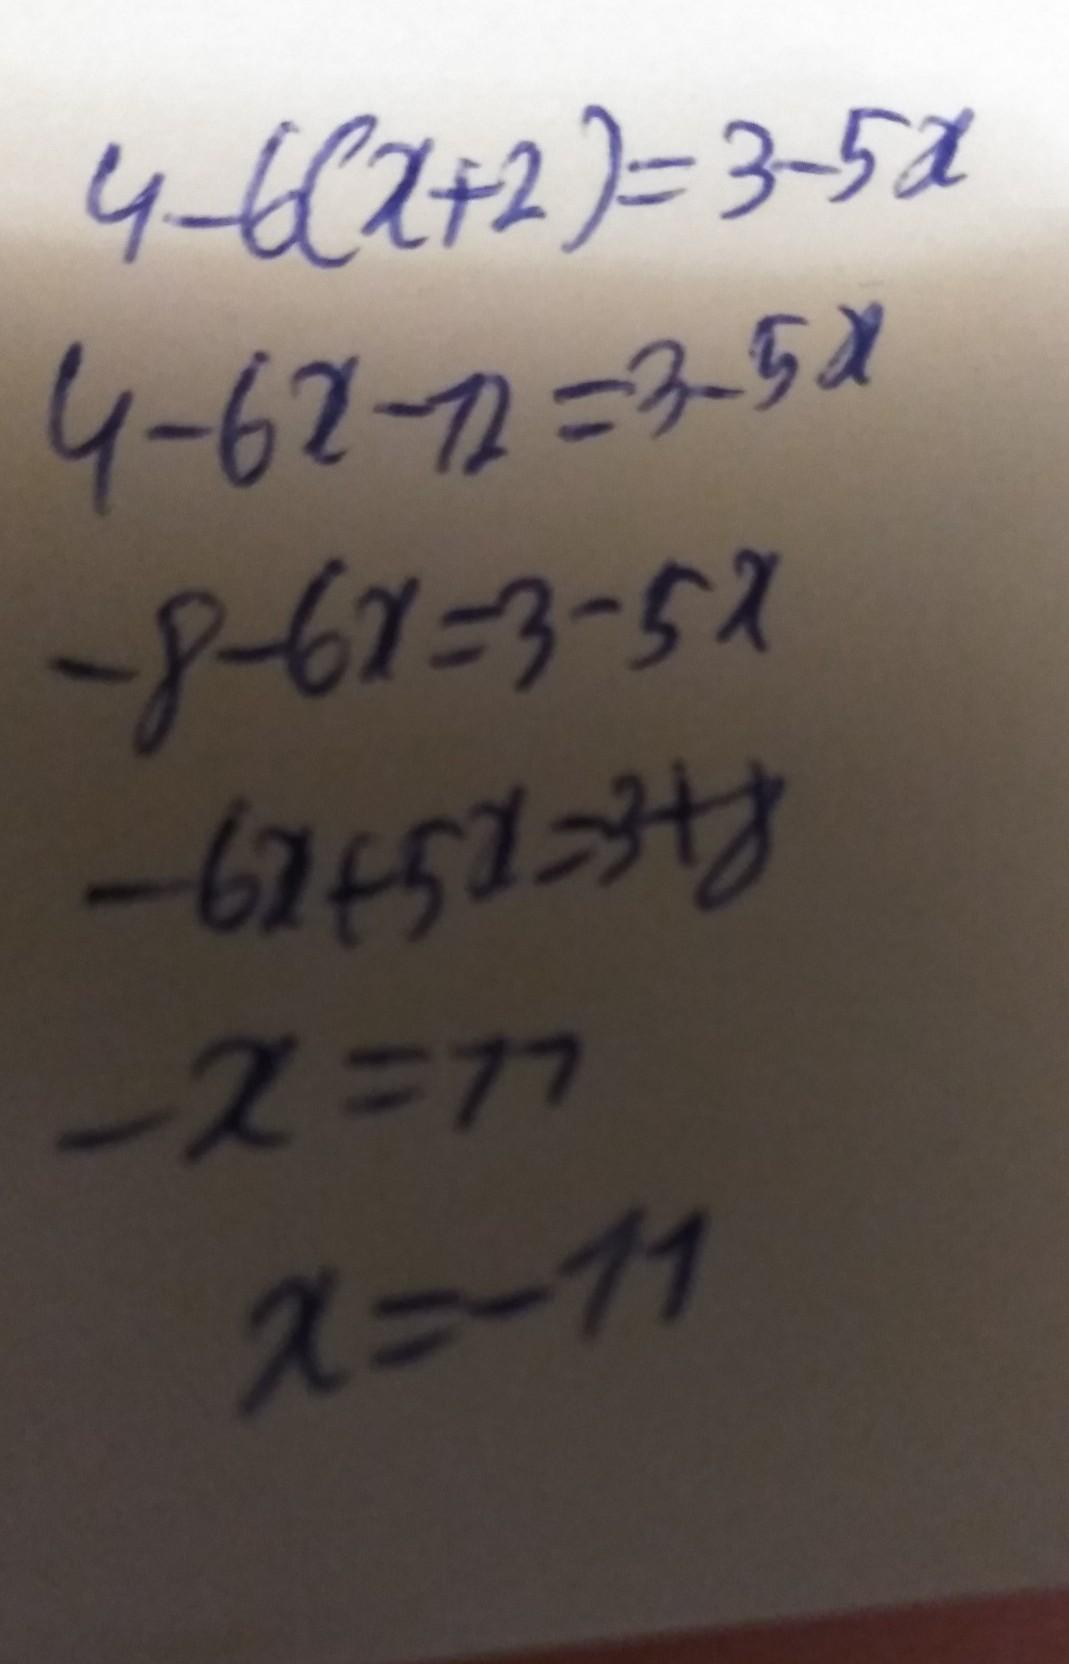 4-6(x+2)=3-5x
4-6x-12=3-5x
-8-6x=3-5x
-6x+5x=3+8
-x=11
x=-11